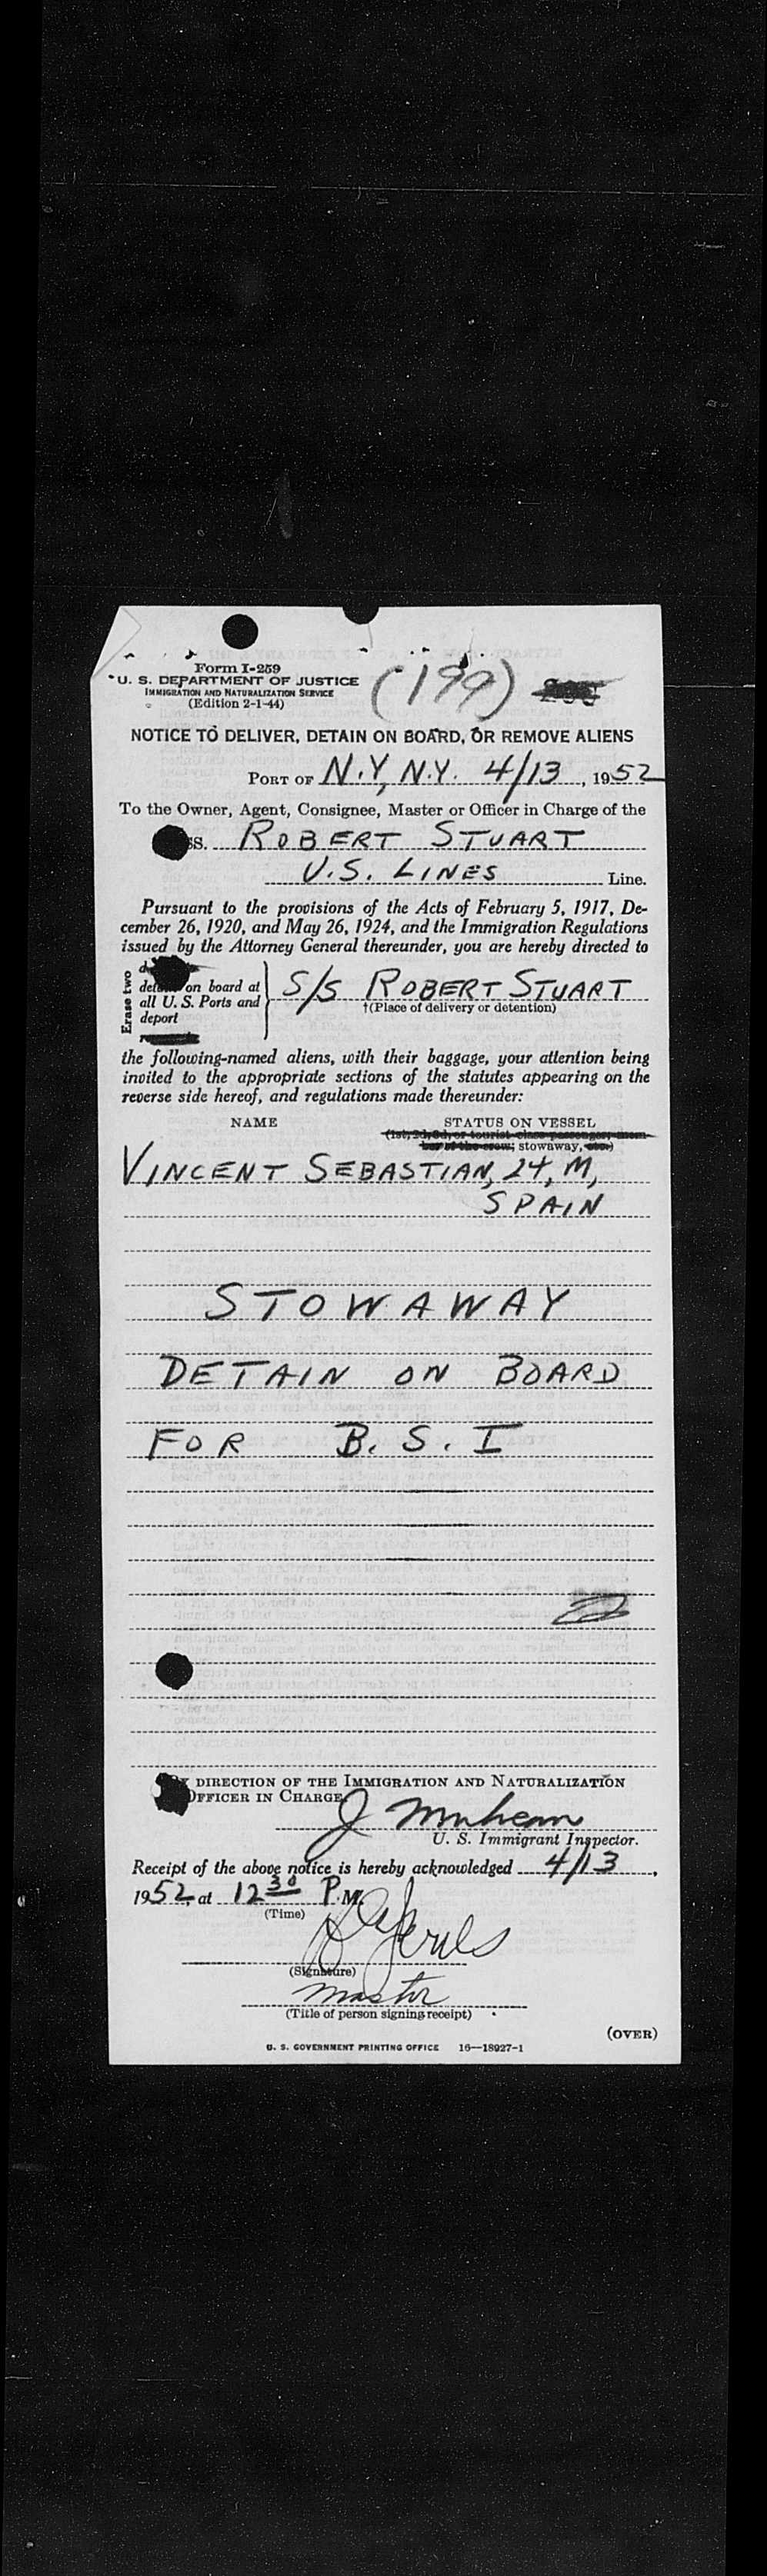 Form I-259
U. S. DEPARTMENT OF JUSTICE
IMMIGRATION AND NATURALIZATION SERVICE
(Edition 2-1-44)
(199)
NOTICE TO DELIVER, DETAIN ON BOARD, OR REMOVE ALIENS
PORT OF N.Y, N.Y. 4/13, 1952
To the Owner, Agent, Consignee, Master or Officer in Charge of the
SS. ROBERT STUART
U.S. LINES Line.
Pursuant to the provisions of the Acts of February 5, 1917, De-
cember 26, 1920, and May 26, 1924, and the Immigration Regulations
issued by the Attorney General thereunder, you are hereby directed to
Erase two
detain on board at
all U. S. Ports and
deport
S/S ROBERT STUART
†(Place of delivery or detention)
the following-named aliens, with their baggage, your attention being
invited to the appropriate sections of the statutes appearing on the
reverse side hereof, and regulations made thereunder:
NAME STATUS ON VESSEL
(1st, 2d, 3d, or tourist class passenger, mem-
ber of the crew, stowaway, etc.)
VINCENT SEBASTIAN, 24, M,
SPAIN
STOWAWAY
DETAIN ON BOARD
FOR B. S. I
BY DIRECTION OF THE IMMIGRATION AND NATURALIZATION
OFFICER IN CHARGE
J
U. S. Immigrant Inspector.
Receipt of the above notice is hereby acknowledged 4/13,
1952, at 12 30 P.M.
(Time)
(Signature)
Master
(Title of person signing receipt)
(OVER)
U. S. GOVERNMENT PRINTING OFFICE 16—18927-1